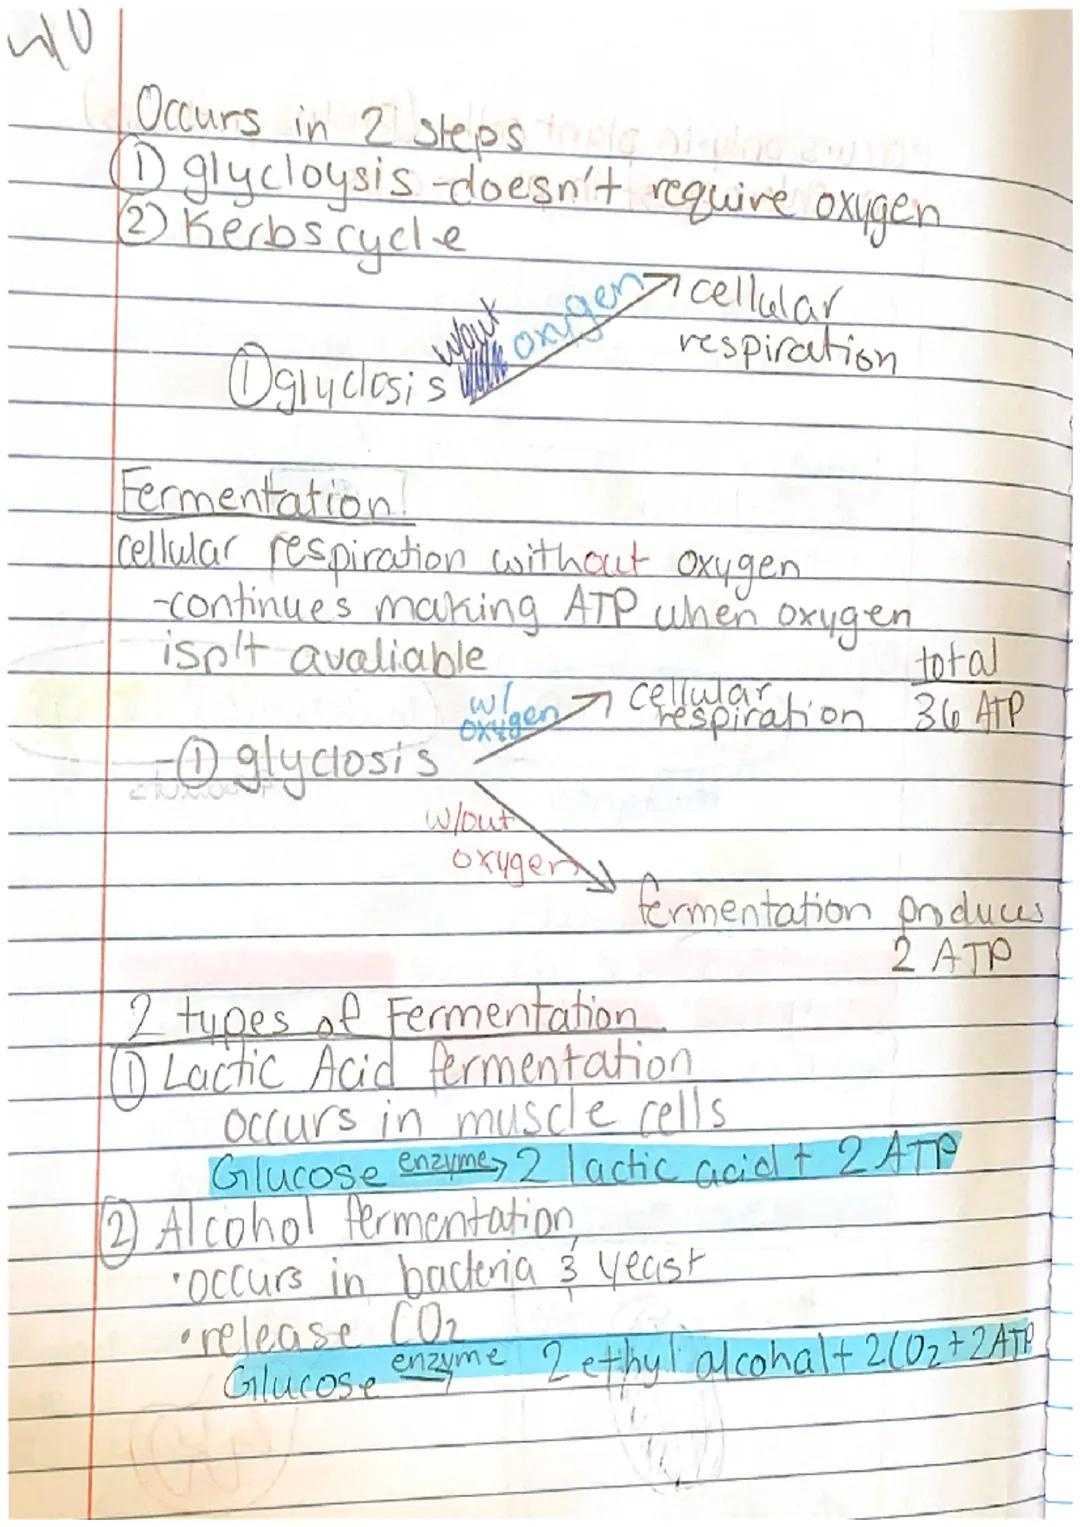 Occurs in 2 steps
① glycloysis -doesn't require oxygen
② Kerbs cycle
w/out oxygen cellular
respiration
① glyclosis
Fermentation
cellular respiration without oxygen
-continues making ATP when oxygen
isn't avaliable
total
w/ oxygen cellular respiration 36 ATP
-① glyclosis
w/out
oxygen
fermentation produces
2 ATP
2 types of Fermentation
① Lactic Acid fermentation
occurs in muscle cells
Glucose enzyme→ 2 lactic acid + 2 ATP
② Alcohol fermentation
•occurs in bacteria & yeast
•release CO₂
Glucose enzyme→ 2 ethyl alcohal + 2CO₂ + 2ATP